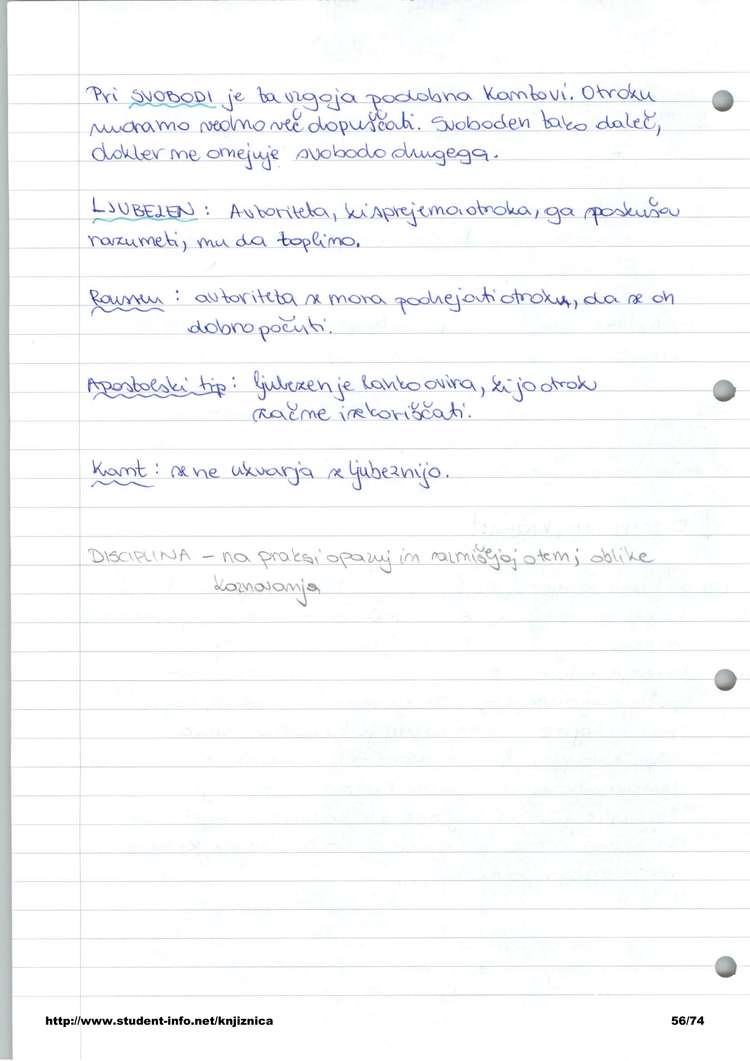 Pri SVOBODI je ta vzgoja podobna Kantovi. Otroku
moramo vedno več dopuščati. Svoboden tako daleč,
dokler ne omejuje svobodo drugega.
LJUBEZEN : Avtoriteta, ki sprejema otroka, ga poskuša
razumeti, mu da toplino.
: avtoriteta se mora podrejati otroku, da se on
dobro počuti.
Apostolski tip : ljubezen je lahko ovira, ki jo otrok
začne izkoriščati.
Kant : se ne ukvarja z ljubeznijo.
DISCIPLINA – na praksi opazuj in razmišljaj o tem; oblike
kaznovanja
http://www.student-info.net/knjiznica 56/74